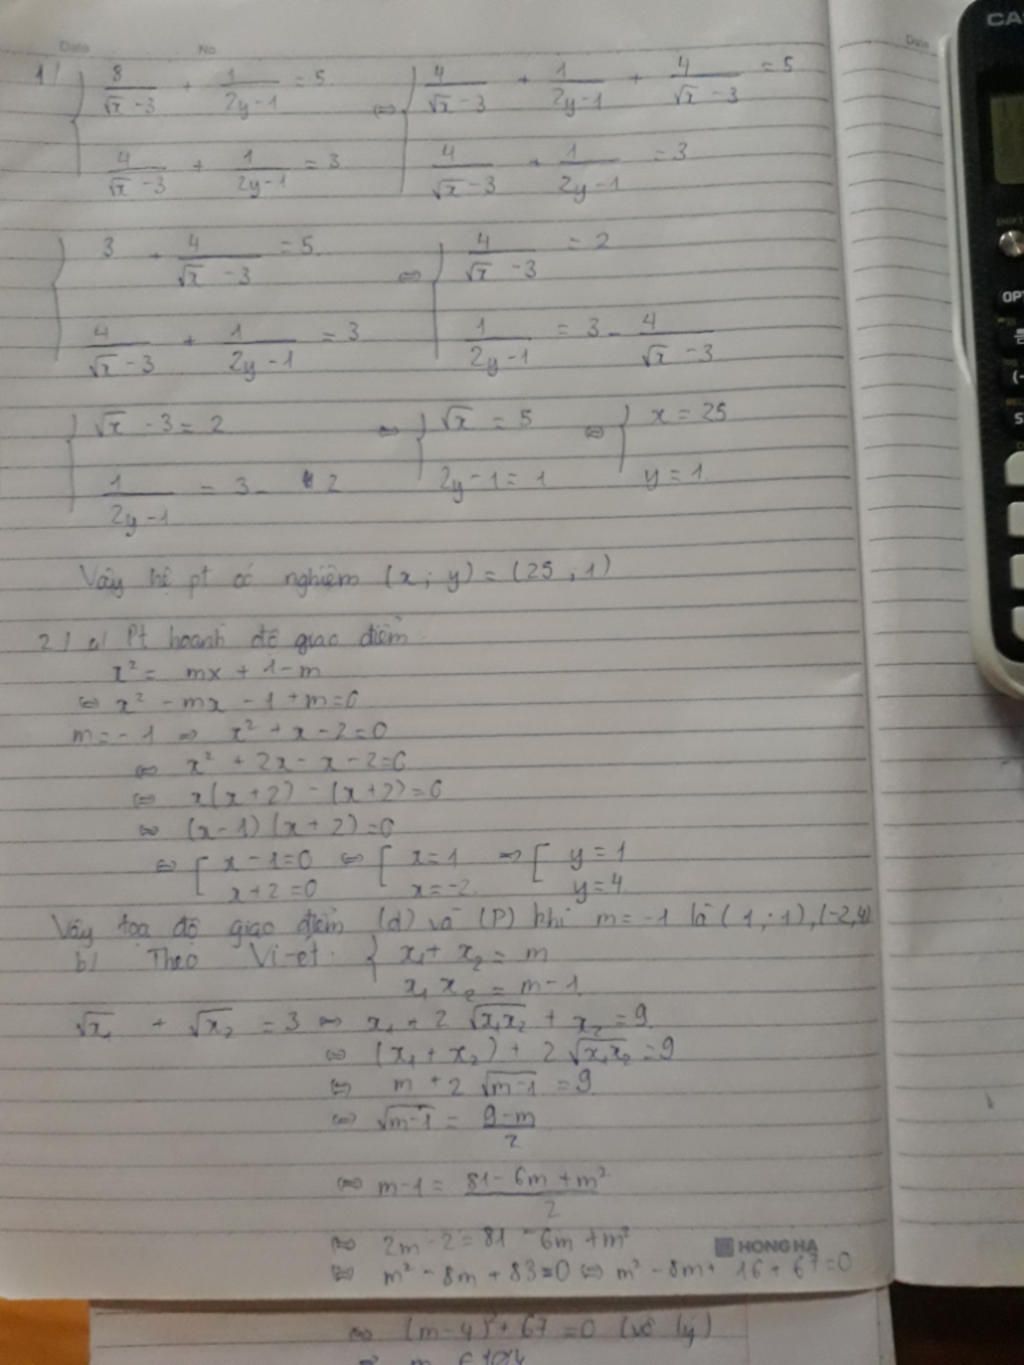 Date No
1/ { 8/(√x - 3) + 1/(2y-1) = 5 ⇔ { 4/(√x - 3) + 1/(2y-1) + 4/(√x - 3) = 5
4/(√x - 3) + 1/(2y-1) = 3 4/(√x - 3) + 1/(2y-1) = 3
{ 3 + 4/(√x - 3) = 5 ⇔ { 4/(√x - 3) = 2
4/(√x - 3) + 1/(2y-1) = 3 1/(2y-1) = 3 - 4/(√x - 3)
{ √x - 3 = 2 ⇔ { √x = 5 ⇔ { x = 25
1/(2y-1) = 3 - 2 2y-1 = 1 y = 1
Vậy hệ pt có nghiệm (x; y) = (25; 1)
2/ a/ Pt hoành độ giao điểm:
x² = mx + 1-m
⇔ x² - mx - 1 + m = 0
m = -1 ⇒ x² + x - 2 = 0
⇔ x² + 2x - x - 2 = 0
⇔ x(x+2) - (x+2) = 0
⇔ (x-1)(x+2) = 0
⇔ [ x-1=0 ⇔ [ x=1 ⇒ [ y=1
x+2=0 x=-2 y=4
Vậy tọa độ giao điểm (d) và (P) khi m = -1 là (1;1), (-2,4)
b/ Theo Vi-et: { x₁ + x₂ = m
x₁ x₂ = m-1
√x₁ + √x₂ = 3 ⇔ x₁ + 2√x₁x₂ + x₂ = 9
⇔ (x₁ + x₂) + 2√x₁x₂ = 9
⇔ m + 2√m-1 = 9
⇔ √m-1 = (9-m)/2
⇔ m-1 = (81 - 6m + m²)/2
⇔ 2m - 2 = 81 - 6m + m²
HONG HA
⇔ m² - 8m + 83 = 0 ⇔ m² - 8m + 16 + 67 = 0
⇔ (m-4)² + 67 = 0 (vô lý)
Date
CA
OPT
(-
S